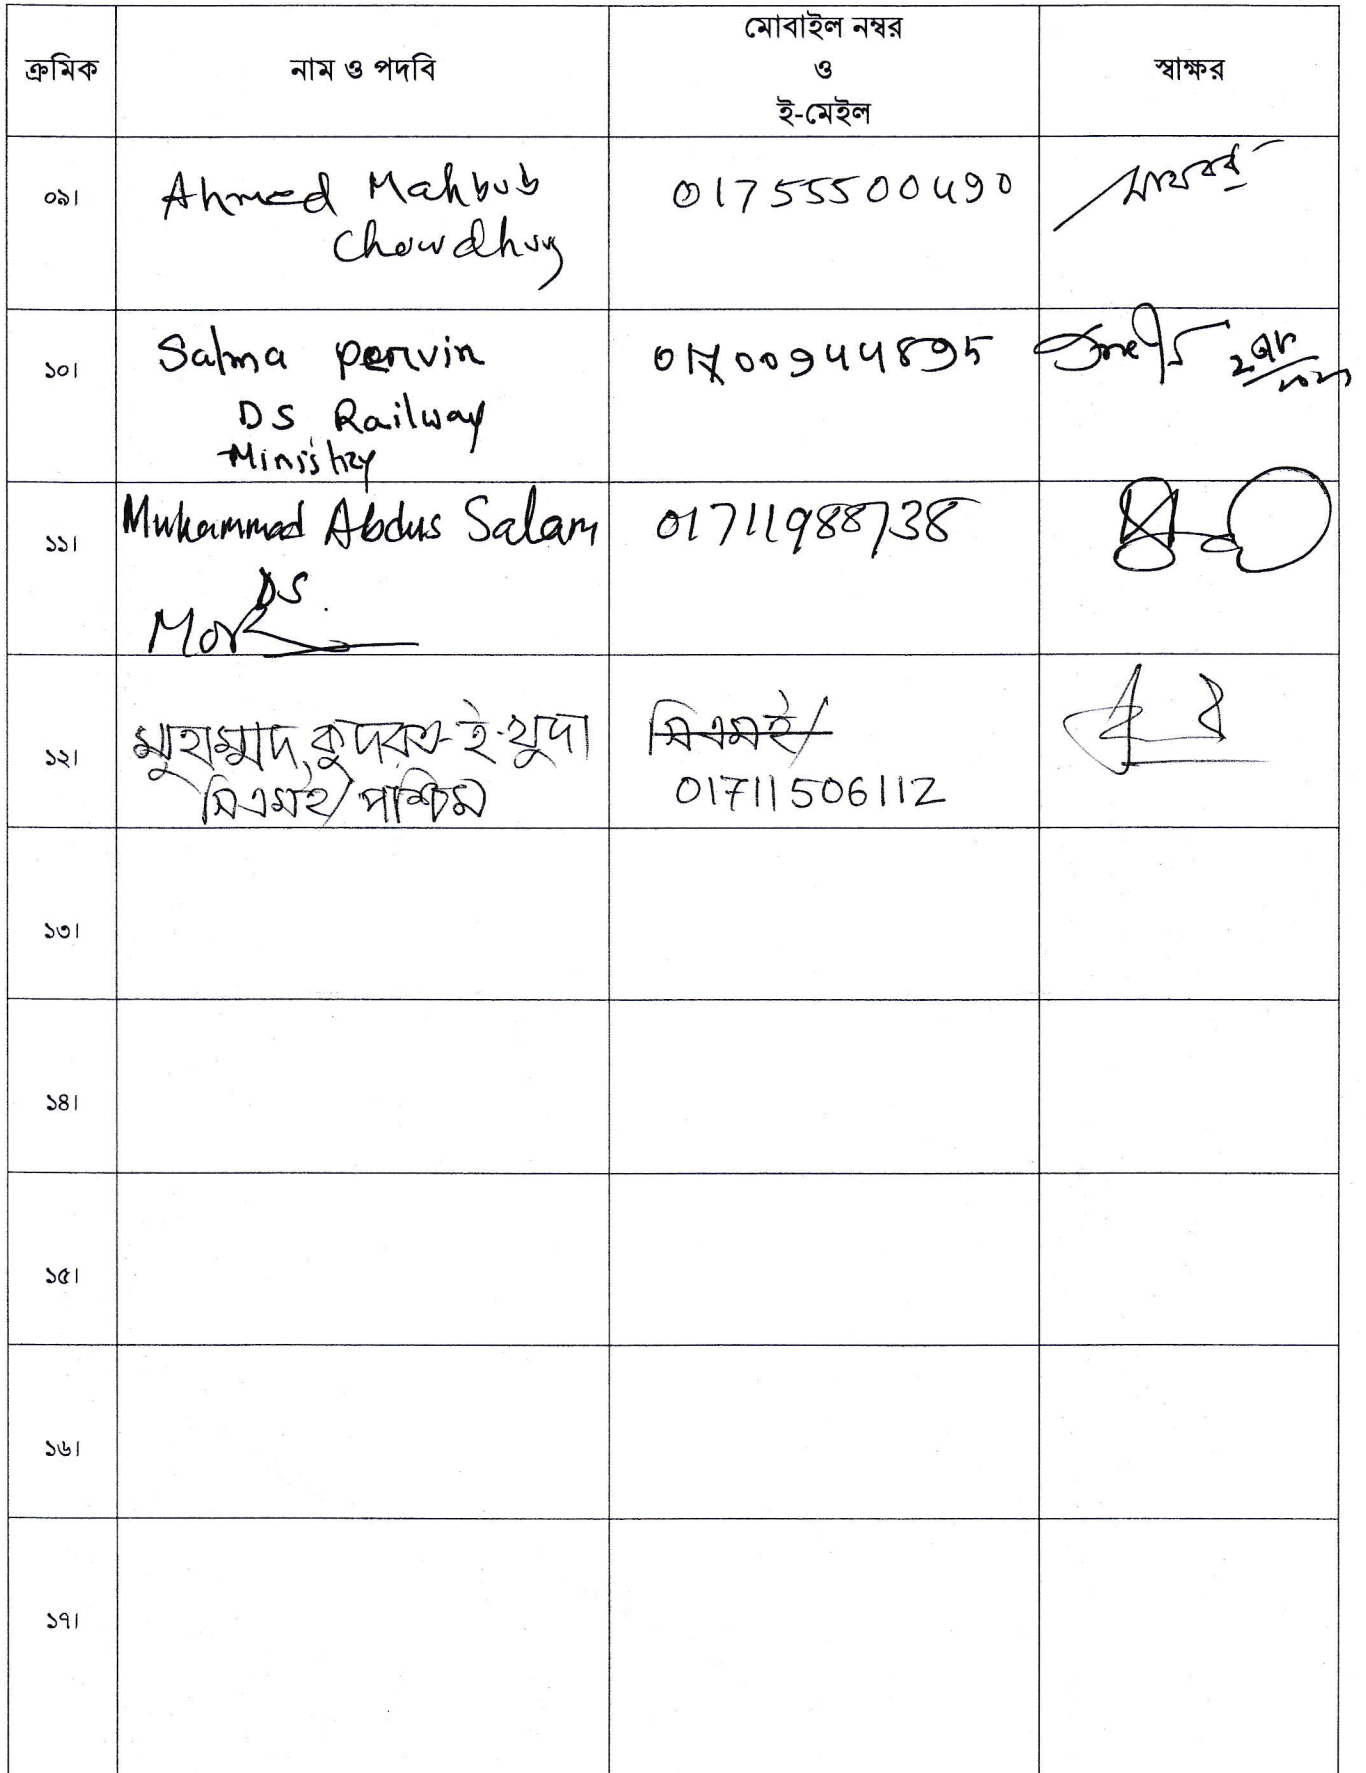 ক্রমিক
নাম ও পদবি
মোবাইল নম্বর
ও
ই-মেইল
স্বাক্ষর
০৯।
Ahmed Mahbub
Chowdhury
01755500490
১০।
Salma Pervin
DS Railway
Ministry
01700944895
১১।
Muhammad Abdus Salam
DS
MoR
01711988738
১২।
মুহাম্মাদ কুদরত-ই-খুদা
সিএমই/পশ্চিম
সিএমই/
01711506112
১৩।
১৪।
১৫।
১৬।
১৭।